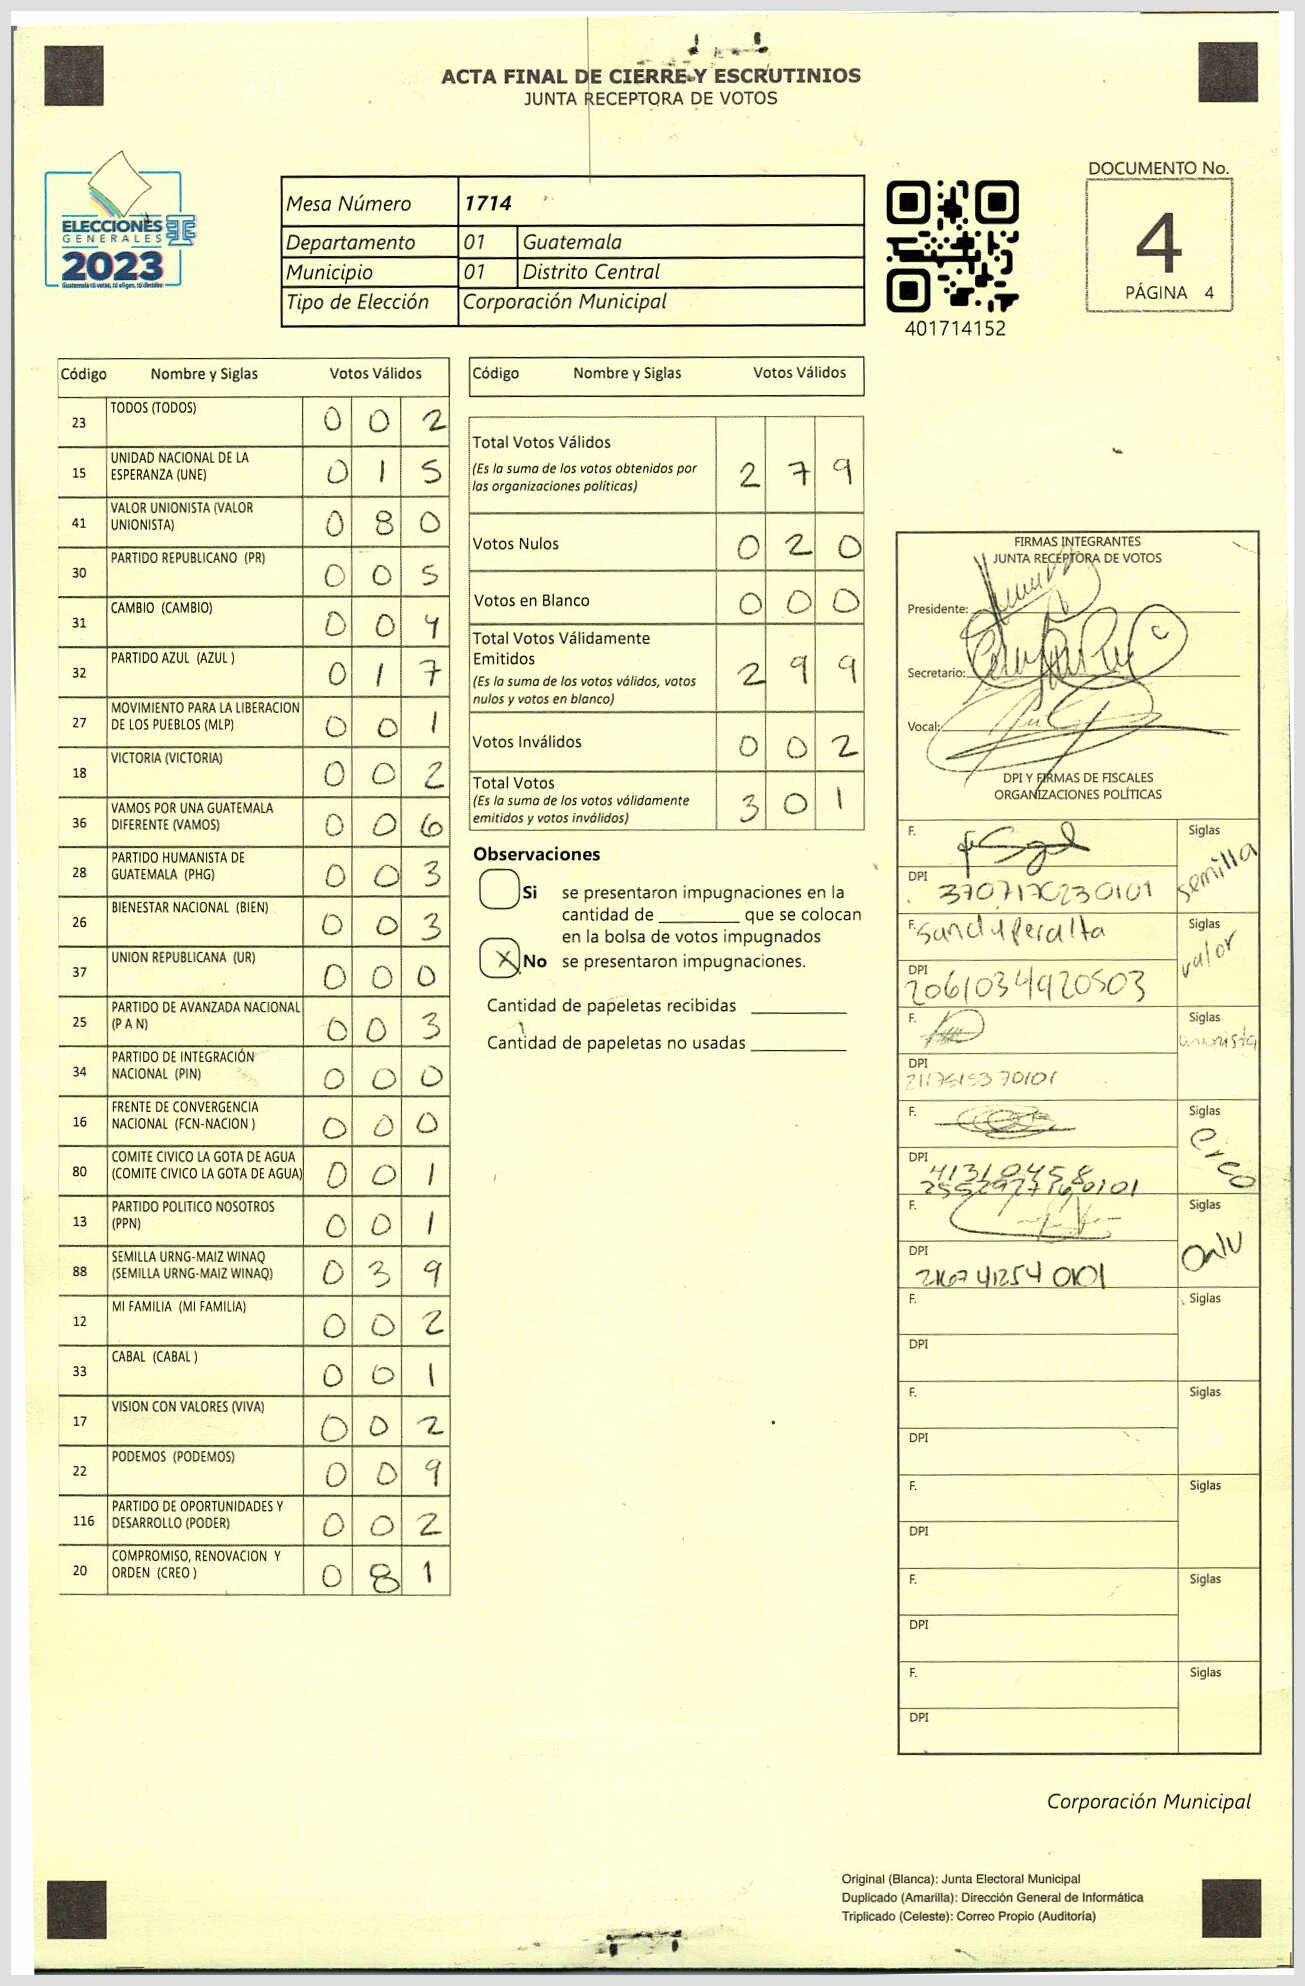 ACTA FINAL DE CIERRE Y ESCRUTINIOS
JUNTA RECEPTORA DE VOTOS
ELECCIONES
GENERALES
2023
Guatemala tú votas, tú eliges, tú decides
Mesa Número 1714
Departamento 01 Guatemala
Municipio 01 Distrito Central
Tipo de Elección Corporación Municipal
401714152
DOCUMENTO No.
4
PÁGINA 4
Código Nombre y Siglas Votos Válidos
23 TODOS (TODOS) 0 0 2
15 UNIDAD NACIONAL DE LA
ESPERANZA (UNE) 0 1 5
41 VALOR UNIONISTA (VALOR
UNIONISTA) 0 8 0
30 PARTIDO REPUBLICANO (PR) 0 0 5
31 CAMBIO (CAMBIO) 0 0 4
32 PARTIDO AZUL (AZUL ) 0 1 7
27 MOVIMIENTO PARA LA LIBERACION
DE LOS PUEBLOS (MLP) 0 0 1
18 VICTORIA (VICTORIA) 0 0 2
36 VAMOS POR UNA GUATEMALA
DIFERENTE (VAMOS) 0 0 6
28 PARTIDO HUMANISTA DE
GUATEMALA (PHG) 0 0 3
26 BIENESTAR NACIONAL (BIEN) 0 0 3
37 UNION REPUBLICANA (UR) 0 0 0
25 PARTIDO DE AVANZADA NACIONAL
(P A N) 0 0 3
34 PARTIDO DE INTEGRACIÓN
NACIONAL (PIN) 0 0 0
16 FRENTE DE CONVERGENCIA
NACIONAL (FCN-NACION ) 0 0 0
80 COMITE CIVICO LA GOTA DE AGUA
(COMITE CIVICO LA GOTA DE AGUA) 0 0 1
13 PARTIDO POLITICO NOSOTROS
(PPN) 0 0 1
88 SEMILLA URNG-MAIZ WINAQ
(SEMILLA URNG-MAIZ WINAQ) 0 3 9
12 MI FAMILIA (MI FAMILIA) 0 0 2
33 CABAL (CABAL ) 0 0 1
17 VISION CON VALORES (VIVA) 0 0 2
22 PODEMOS (PODEMOS) 0 0 9
116 PARTIDO DE OPORTUNIDADES Y
DESARROLLO (PODER) 0 0 2
20 COMPROMISO, RENOVACION Y
ORDEN (CREO ) 0 8 1
Código Nombre y Siglas Votos Válidos
Total Votos Válidos
(Es la suma de los votos obtenidos por
las organizaciones políticas) 2 7 9
Votos Nulos 0 2 0
Votos en Blanco 0 0 0
Total Votos Válidamente
Emitidos
(Es la suma de los votos válidos, votos
nulos y votos en blanco) 2 9 9
Votos Inválidos 0 0 2
Total Votos
(Es la suma de los votos válidamente
emitidos y votos inválidos) 3 0 1
Observaciones
Si se presentaron impugnaciones en la
cantidad de ________ que se colocan
en la bolsa de votos impugnados
X No se presentaron impugnaciones.
Cantidad de papeletas recibidas
Cantidad de papeletas no usadas
FIRMAS INTEGRANTES
JUNTA RECEPTORA DE VOTOS
Presidente:
Secretario:
Vocal:
DPI Y FIRMAS DE FISCALES
ORGANIZACIONES POLÍTICAS
F. Siglas
semilla
DPI
3707170230101
F. Sandy Peralta Siglas
valor
DPI
2061034920503
F. Siglas
unionista
DPI
F. Siglas
Creo
DPI
41310458
F. Siglas
DPI
F. Siglas
DPI
F. Siglas
DPI
F. Siglas
DPI
F. Siglas
DPI
F. Siglas
DPI
Corporación Municipal
Original (Blanca): Junta Electoral Municipal
Duplicado (Amarilla): Dirección General de Informática
Triplicado (Celeste): Correo Propio (Auditoría)